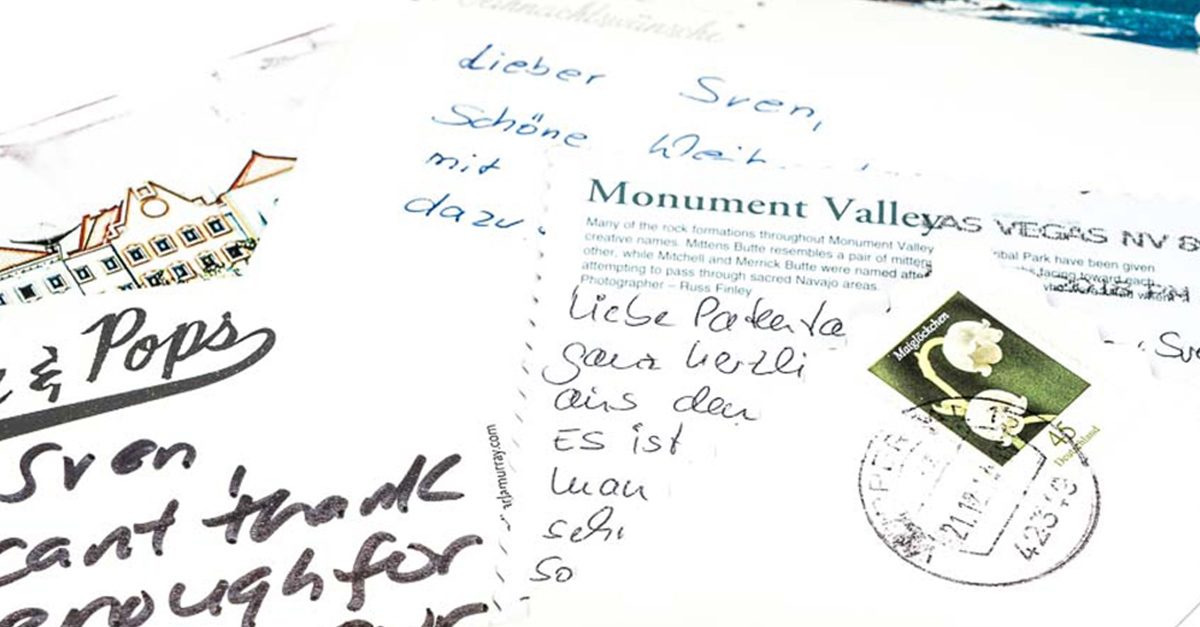 Weihnachtswünsche
Lieber Sven,
Schöne Weih
mit
dazu
& Pops
Sven
cant thank
enough for
Monument Valley
Many of the rock formations throughout Monument Valley
creative names. Mittens Butte resembles a pair of mittens
other, while Mitchell and Merrick Butte were named after
attempting to pass through sacred Navajo areas.
Photographer – Russ Finley
bal Park have been given
facing toward each
LAS VEGAS NV 8
Liebe
ganz herzli
aus den
ES ist
man
so
Sve
Maiglöckchen
45
Deutschland
21.12.1
42349
arlamurray.com